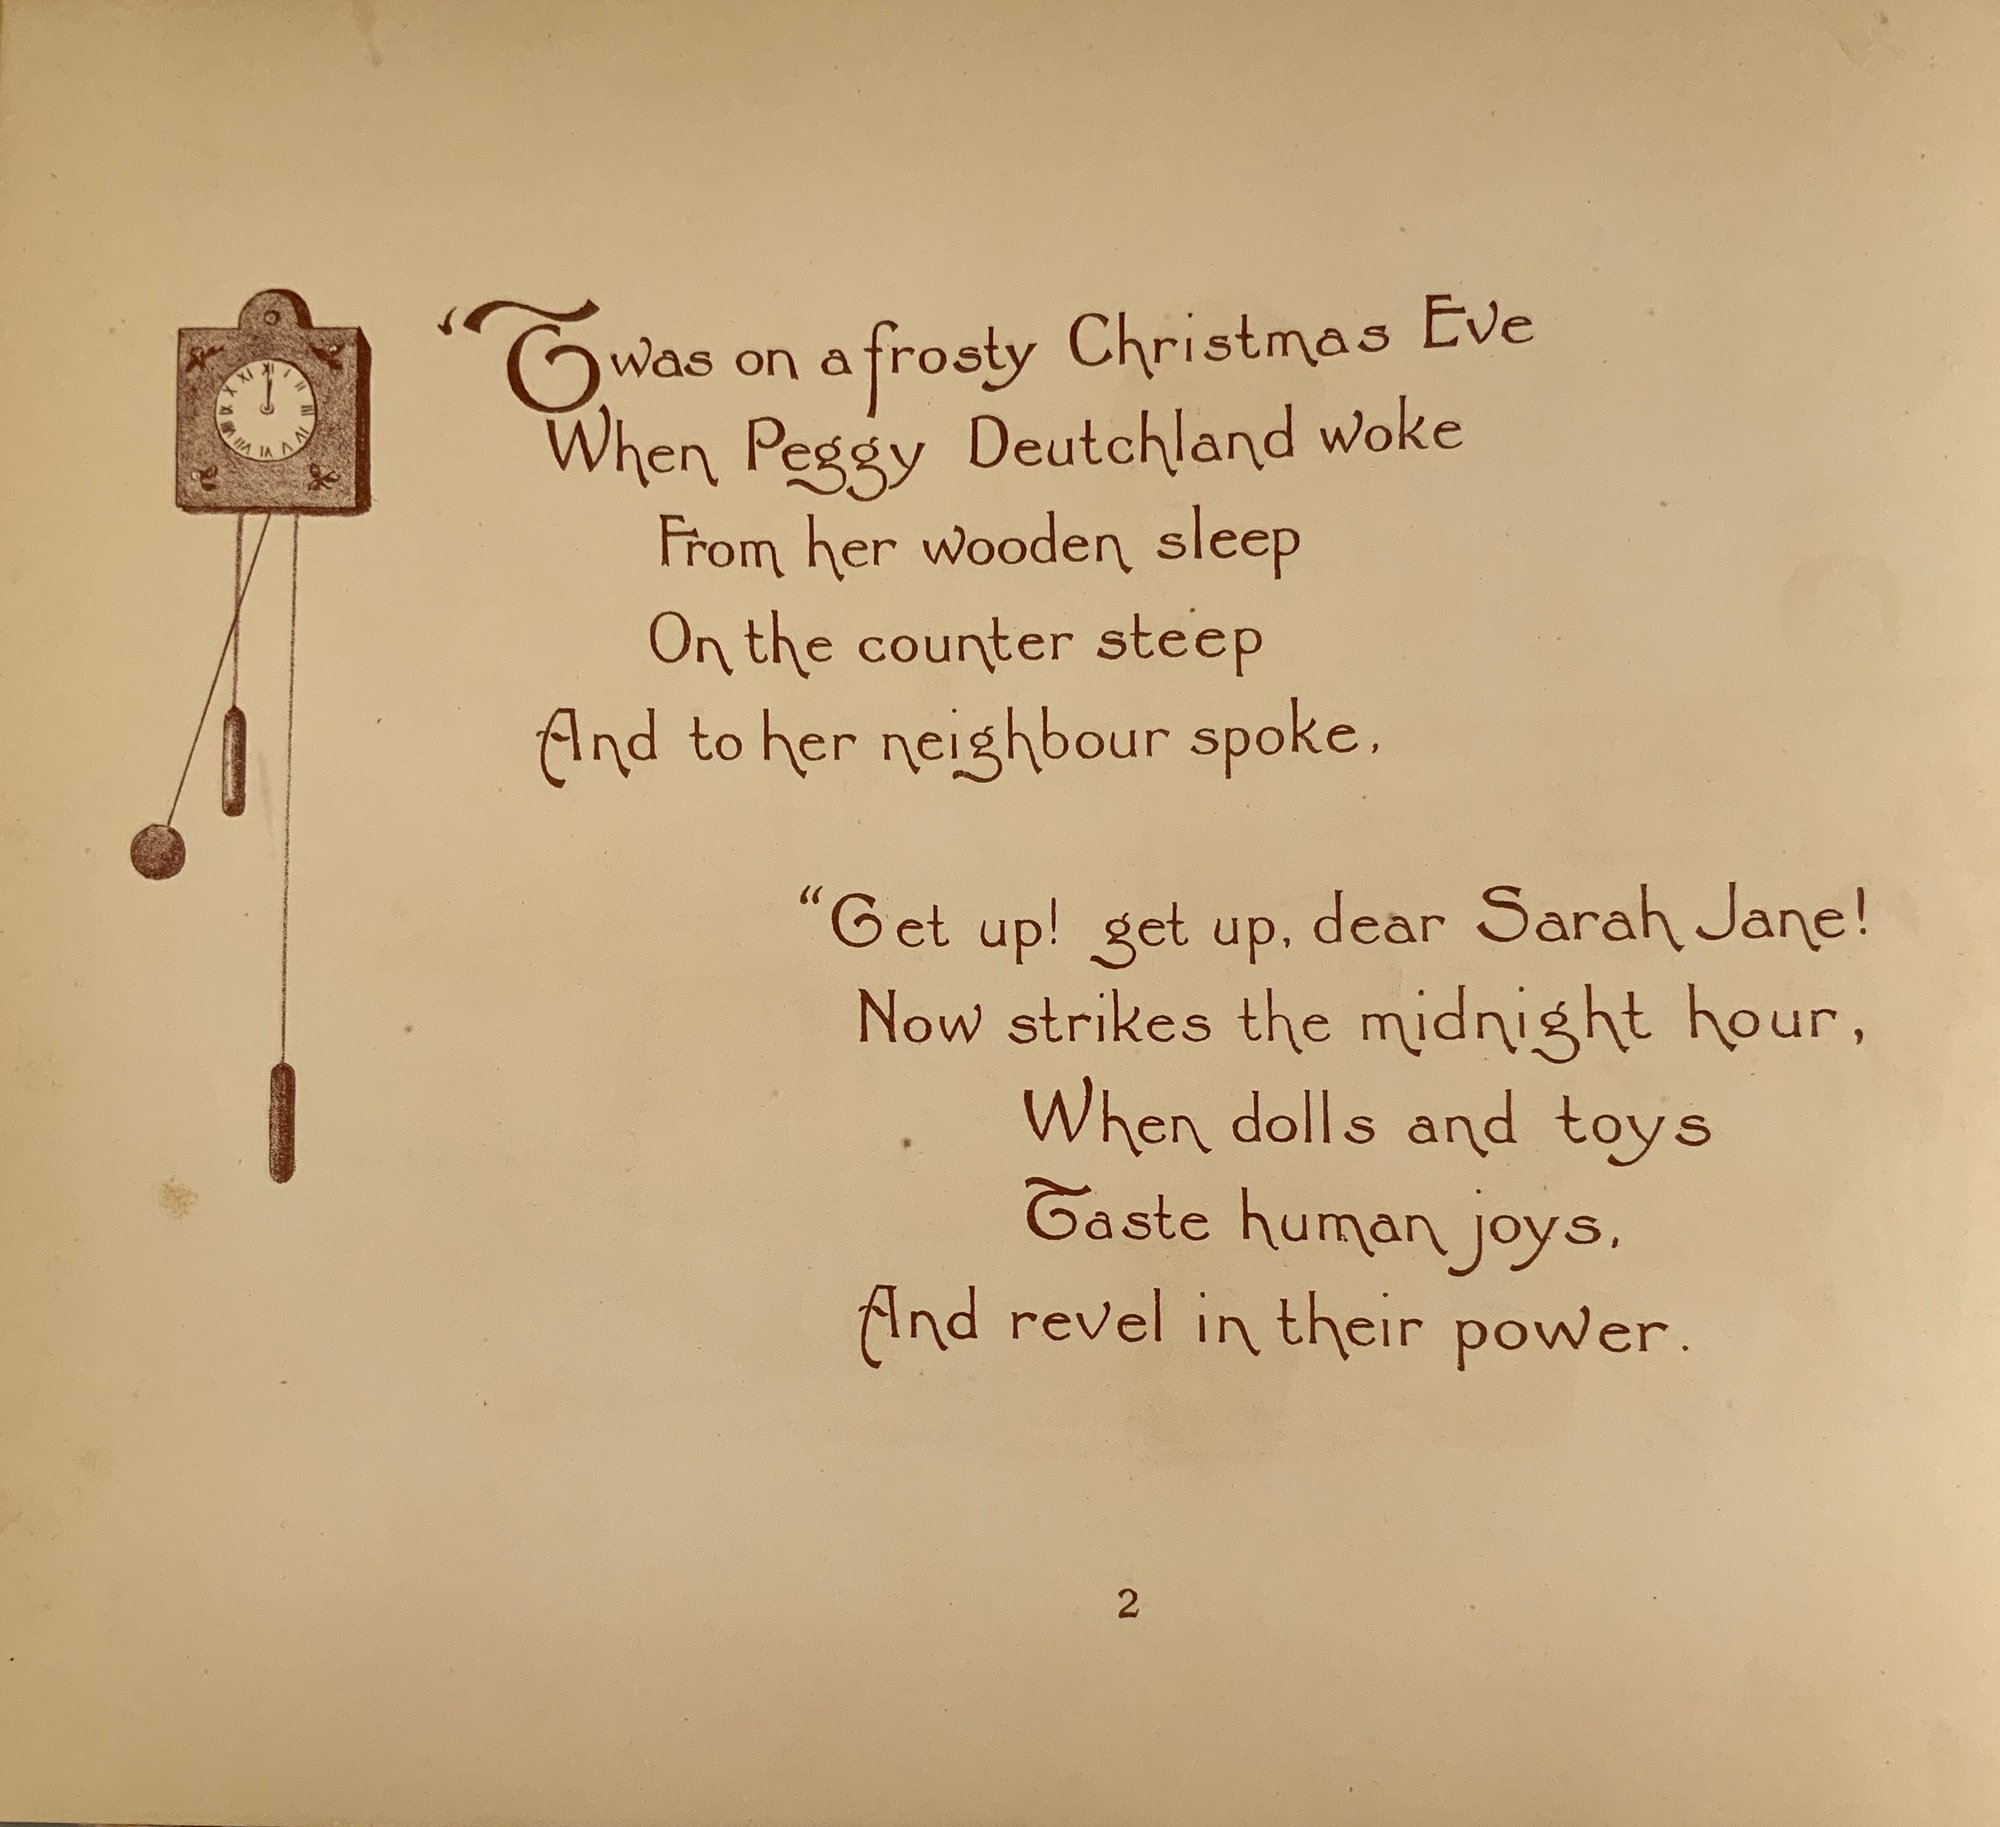 'Twas on a frosty Christmas Eve
When Peggy Deutchland woke
From her wooden sleep
On the counter steep
And to her neighbour spoke,
"Get up! get up, dear Sarah Jane!
Now strikes the midnight hour,
When dolls and toys
Taste human joys,
And revel in their power.
2